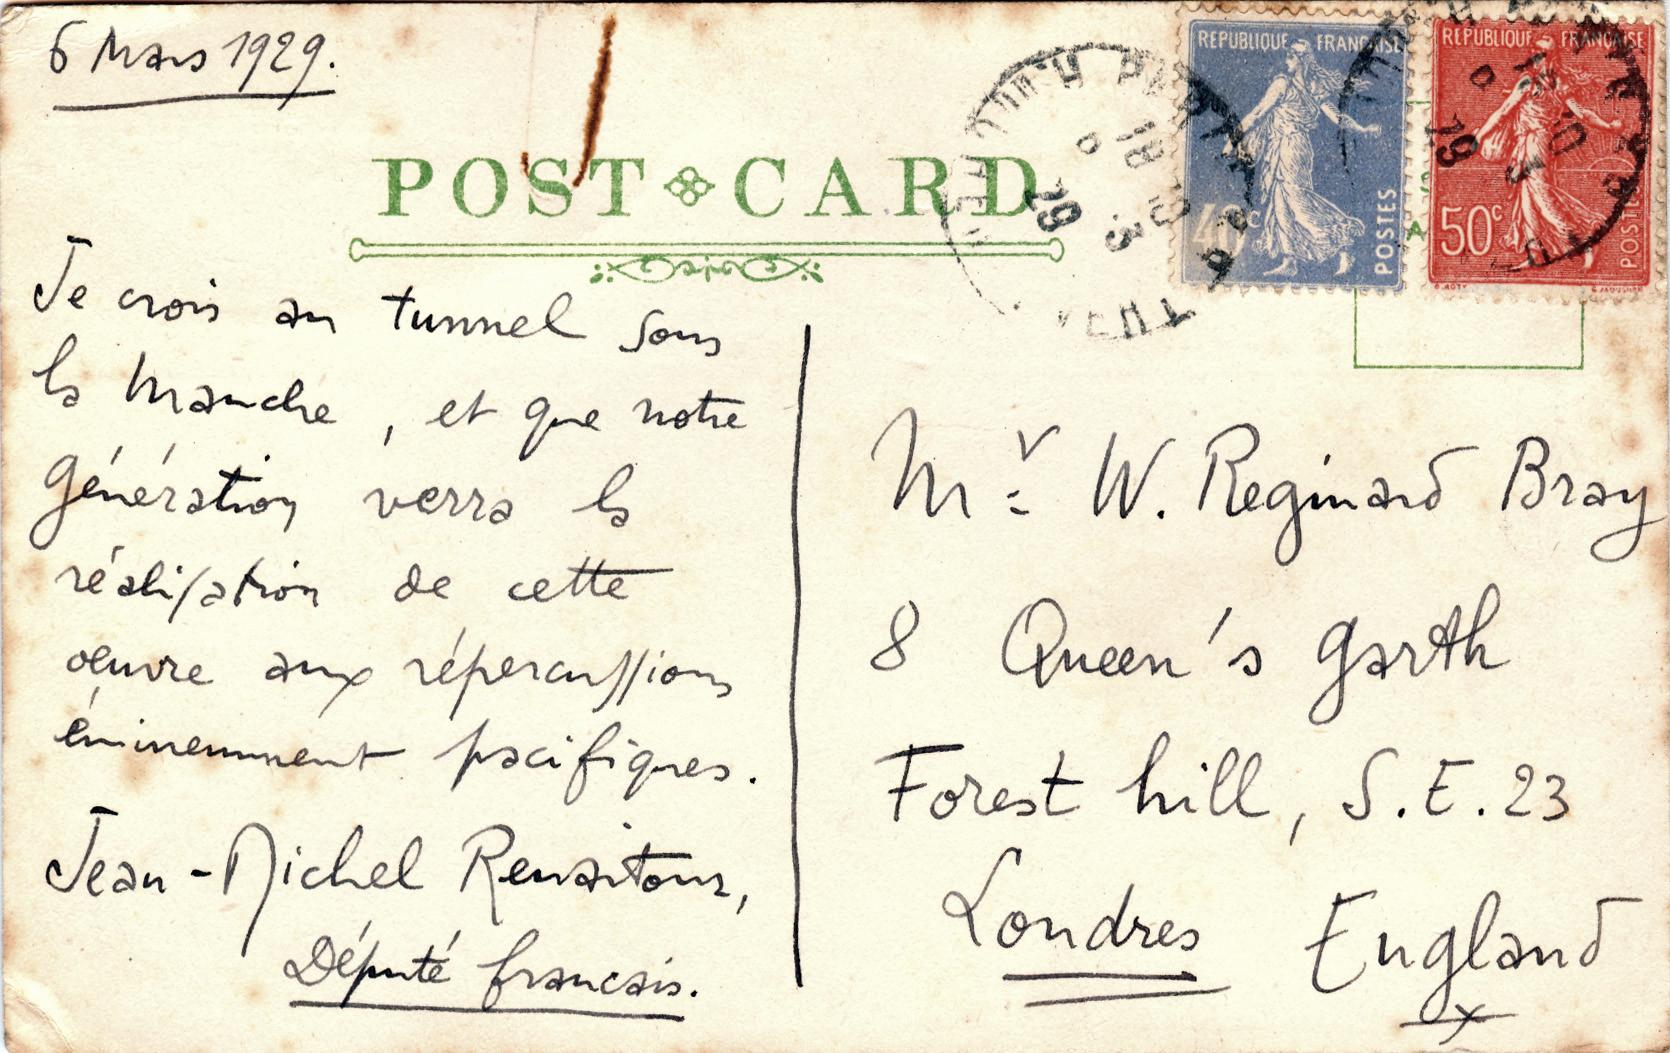 6 Mars 1929.
POST CARD
REPUBLIQUE FRANÇAISE
40c
POSTES
REPUBLIQUE FRANÇAISE
50c
POSTES
18 10
3
29
Je crois au tunnel sous
la Manche, et que notre
génération verra la
réalisation de cette
œuvre aux répercussions
éminemment pacifiques.
Jean-Michel Renaitour,
Député français.
Mr. W. Reginard Bray
8 Queen's garth
Forest hill, S.E. 23
Londres England